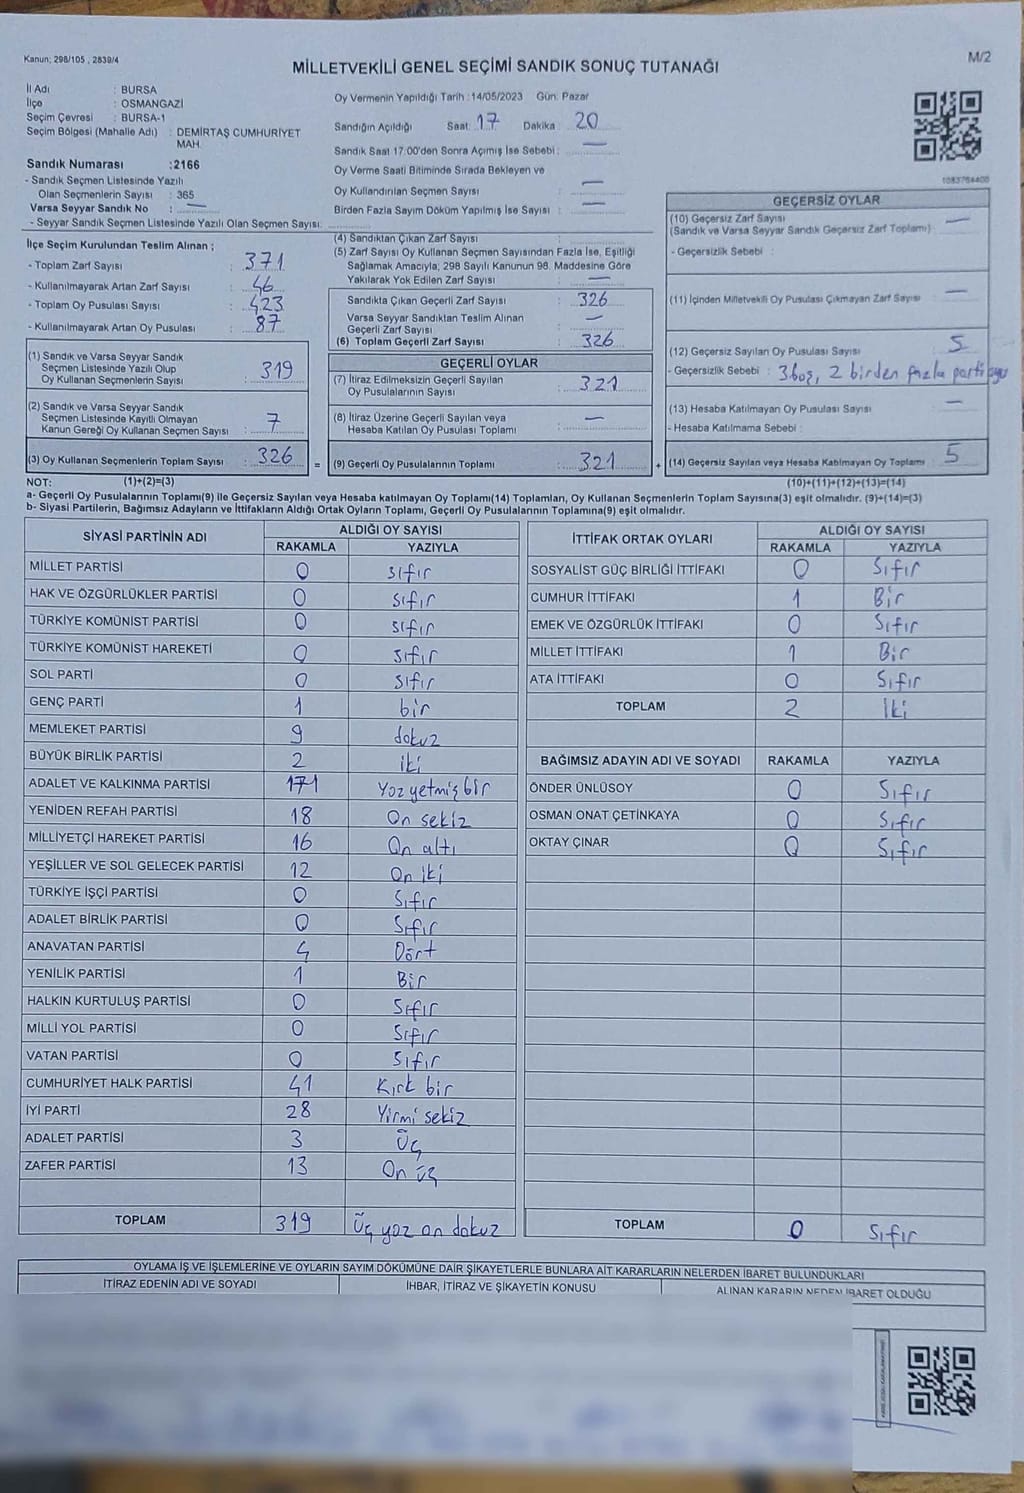 Kanun; 298/105 , 2839/4
M/2
MİLLETVEKİLİ GENEL SEÇİMİ SANDIK SONUÇ TUTANAĞI
İl Adı : BURSA
İlçe : OSMANGAZİ
Seçim Çevresi : BURSA-1
Seçim Bölgesi (Mahalle Adı) : DEMİRTAŞ CUMHURİYET
MAH.
Sandık Numarası :2166
- Sandık Seçmen Listesinde Yazılı
Olan Seçmenlerin Sayısı : 365
Varsa Seyyar Sandık No : —
- Seyyar Sandık Seçmen Listesinde Yazılı Olan Seçmen Sayısı:
Oy Vermenin Yapıldığı Tarih :14/05/2023 Gün: Pazar
Sandığın Açıldığı Saat: 17 Dakika : 20
Sandık Saat 17:00'den Sonra Açımış İse Sebebi : —
Oy Verme Saati Bitiminde Sırada Bekleyen ve
Oy Kullandırılan Seçmen Sayısı : —
Birden Fazla Sayım Döküm Yapılmış İse Sayısı : —
1083764400
İlçe Seçim Kurulundan Teslim Alınan ;
- Toplam Zarf Sayısı : 371
- Kullanılmayarak Artan Zarf Sayısı : 46
- Toplam Oy Pusulası Sayısı : 423
- Kullanılmayarak Artan Oy Pusulası : 87
(1) Sandık ve Varsa Seyyar Sandık
Seçmen Listesinde Yazılı Olup
Oy Kullanan Seçmenlerin Sayısı : 319
(2) Sandık ve Varsa Seyyar Sandık
Seçmen Listesinde Kayıtlı Olmayan
Kanun Gereği Oy Kullanan Seçmen Sayısı : 7
(3) Oy Kullanan Seçmenlerin Toplam Sayısı : 326
(4) Sandıktan Çıkan Zarf Sayısı :
(5) Zarf Sayısı Oy Kullanan Seçmen Sayısından Fazla İse, Eşitliği
Sağlamak Amacıyla; 298 Sayılı Kanunun 98. Maddesine Göre
Yakılarak Yok Edilen Zarf Sayısı : —
Sandıkta Çıkan Geçerli Zarf Sayısı : 326
Varsa Seyyar Sandıktan Teslim Alınan
Geçerli Zarf Sayısı : —
(6) Toplam Geçerli Zarf Sayısı : 326
GEÇERLİ OYLAR
(7) İtiraz Edilmeksizin Geçerli Sayılan
Oy Pusulalarının Sayısı : 321
(8) İtiraz Üzerine Geçerli Sayılan veya
Hesaba Katılan Oy Pusulası Toplamı : —
= (9) Geçerli Oy Pusulalarının Toplamı : 321 +
GEÇERSİZ OYLAR
(10) Geçersiz Zarf Sayısı : —
(Sandık ve Varsa Seyyar Sandık Geçersiz Zarf Toplamı)
- Geçersizlik Sebebi :
(11) İçinden Milletvekili Oy Pusulası Çıkmayan Zarf Sayısı : —
(12) Geçersiz Sayılan Oy Pusulası Sayısı : 5
- Geçersizlik Sebebi : 3 boş, 2 birden fazla parti
(13) Hesaba Katılmayan Oy Pusulası Sayısı : —
- Hesaba Katılmama Sebebi :
(14) Geçersiz Sayılan veya Hesaba Katılmayan Oy Toplamı : 5
NOT: (1)+(2)=(3) (10)+(11)+(12)+(13)=(14)
a- Geçerli Oy Pusulalarının Toplamı(9) ile Geçersiz Sayılan veya Hesaba katılmayan Oy Toplamı(14) Toplamları, Oy Kullanan Seçmenlerin Toplam Sayısına(3) eşit olmalıdır. (9)+(14)=(3)
b- Siyasi Partilerin, Bağımsız Adayların ve İttifakların Aldığı Ortak Oyların Toplamı, Geçerli Oy Pusulalarının Toplamına(9) eşit olmalıdır.
SİYASİ PARTİNİN ADI ALDIĞI OY SAYISI
RAKAMLA YAZIYLA
MİLLET PARTİSİ 0 sıfır
HAK VE ÖZGÜRLÜKLER PARTİSİ 0 sıfır
TÜRKİYE KOMÜNİST PARTİSİ 0 sıfır
TÜRKİYE KOMÜNİST HAREKETİ 0 sıfır
SOL PARTİ 0 sıfır
GENÇ PARTİ 1 bir
MEMLEKET PARTİSİ 9 dokuz
BÜYÜK BİRLİK PARTİSİ 2 iki
ADALET VE KALKINMA PARTİSİ 171 Yoz yetmiş bir
YENİDEN REFAH PARTİSİ 18 On sekiz
MİLLİYETÇİ HAREKET PARTİSİ 16 On altı
YEŞİLLER VE SOL GELECEK PARTİSİ 12 On iki
TÜRKİYE İŞÇİ PARTİSİ 0 Sıfır
ADALET BİRLİK PARTİSİ 0 Sıfır
ANAVATAN PARTİSİ 4 Dört
YENİLİK PARTİSİ 1 Bir
HALKIN KURTULUŞ PARTİSİ 0 Sıfır
MİLLİ YOL PARTİSİ 0 Sıfır
VATAN PARTİSİ 0 Sıfır
CUMHURİYET HALK PARTİSİ 41 Kırk bir
İYİ PARTİ 28 Yirmi sekiz
ADALET PARTİSİ 3 Üç
ZAFER PARTİSİ 13 On üç
TOPLAM 319 Üç yoz on dokuz
İTTİFAK ORTAK OYLARI ALDIĞI OY SAYISI
RAKAMLA YAZIYLA
SOSYALİST GÜÇ BİRLİĞİ İTTİFAKI 0 Sıfır
CUMHUR İTTİFAKI 1 Bir
EMEK VE ÖZGÜRLÜK İTTİFAKI 0 Sıfır
MİLLET İTTİFAKI 1 Bir
ATA İTTİFAKI 0 Sıfır
TOPLAM 2 İki
BAĞIMSIZ ADAYIN ADI VE SOYADI RAKAMLA YAZIYLA
ÖNDER ÜNLÜSOY 0 Sıfır
OSMAN ONAT ÇETİNKAYA 0 Sıfır
OKTAY ÇINAR 0 Sıfır
TOPLAM 0 Sıfır
OYLAMA İŞ VE İŞLEMLERİNE VE OYLARIN SAYIM DÖKÜMÜNE DAİR ŞİKAYETLERLE BUNLARA AİT KARARLARIN NELERDEN İBARET BULUNDUKLARI
İTİRAZ EDENİN ADI VE SOYADI İHBAR, İTİRAZ VE ŞİKAYETİN KONUSU ALINAN KARARIN NEDEN İBARET OLDUĞU